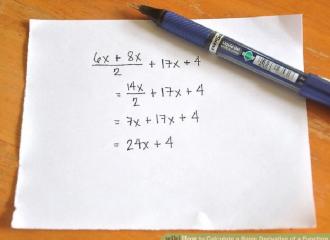 6x + 8x / 2 + 17x + 4
= 14x / 2 + 17x + 4
= 7x + 17x + 4
= 24x + 4
wiki How to Calculate a Basic Derivative of a Function